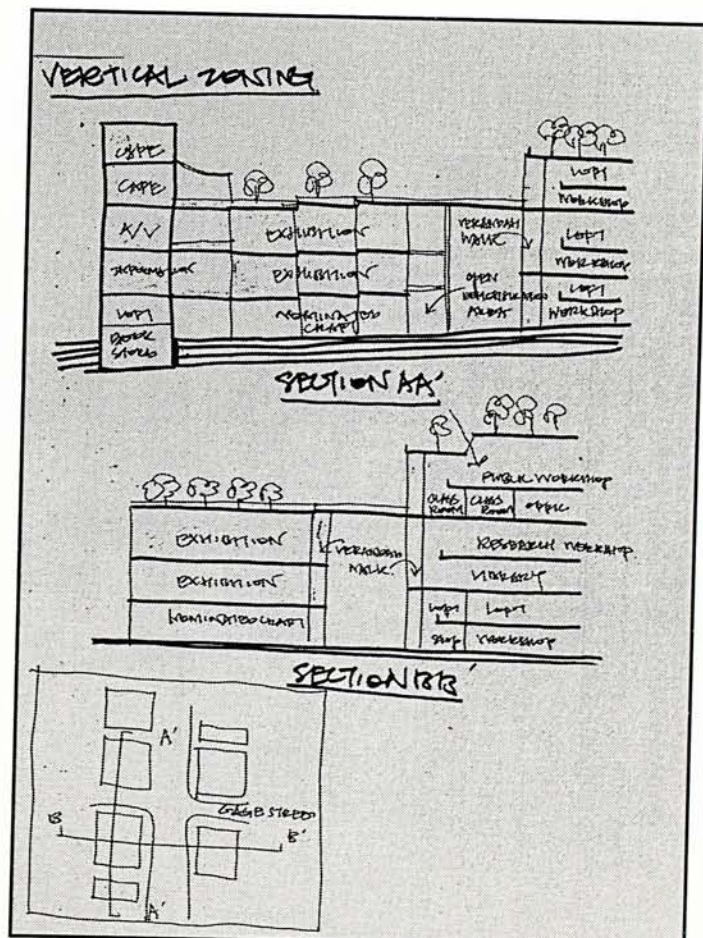 VERTICAL ZONING
CAFE
CAFE
A/V
INFORMATION
LOFT
BOOK
STORE
EXHIBITION
EXHIBITION
NOMINATED
CRAFT
VERANDAH
WALK
OPEN
DEMONSTRATION
AREA
LOFT
WORKSHOP
LOFT
WORKSHOP
LOFT
WORKSHOP
SECTION AA'
EXHIBITION
EXHIBITION
NOMINATED CRAFT
VERANDAH
WALK
PUBLIC WORKSHOP
CLASS
ROOM
CLASS
ROOM
OFFIC
RESEARCH WORKSHOP
LIBRARY
LOFT
LOFT
SHOP
WORKSHOP
SECTION BB'
A'
GAGE STREET
B
B'
A'